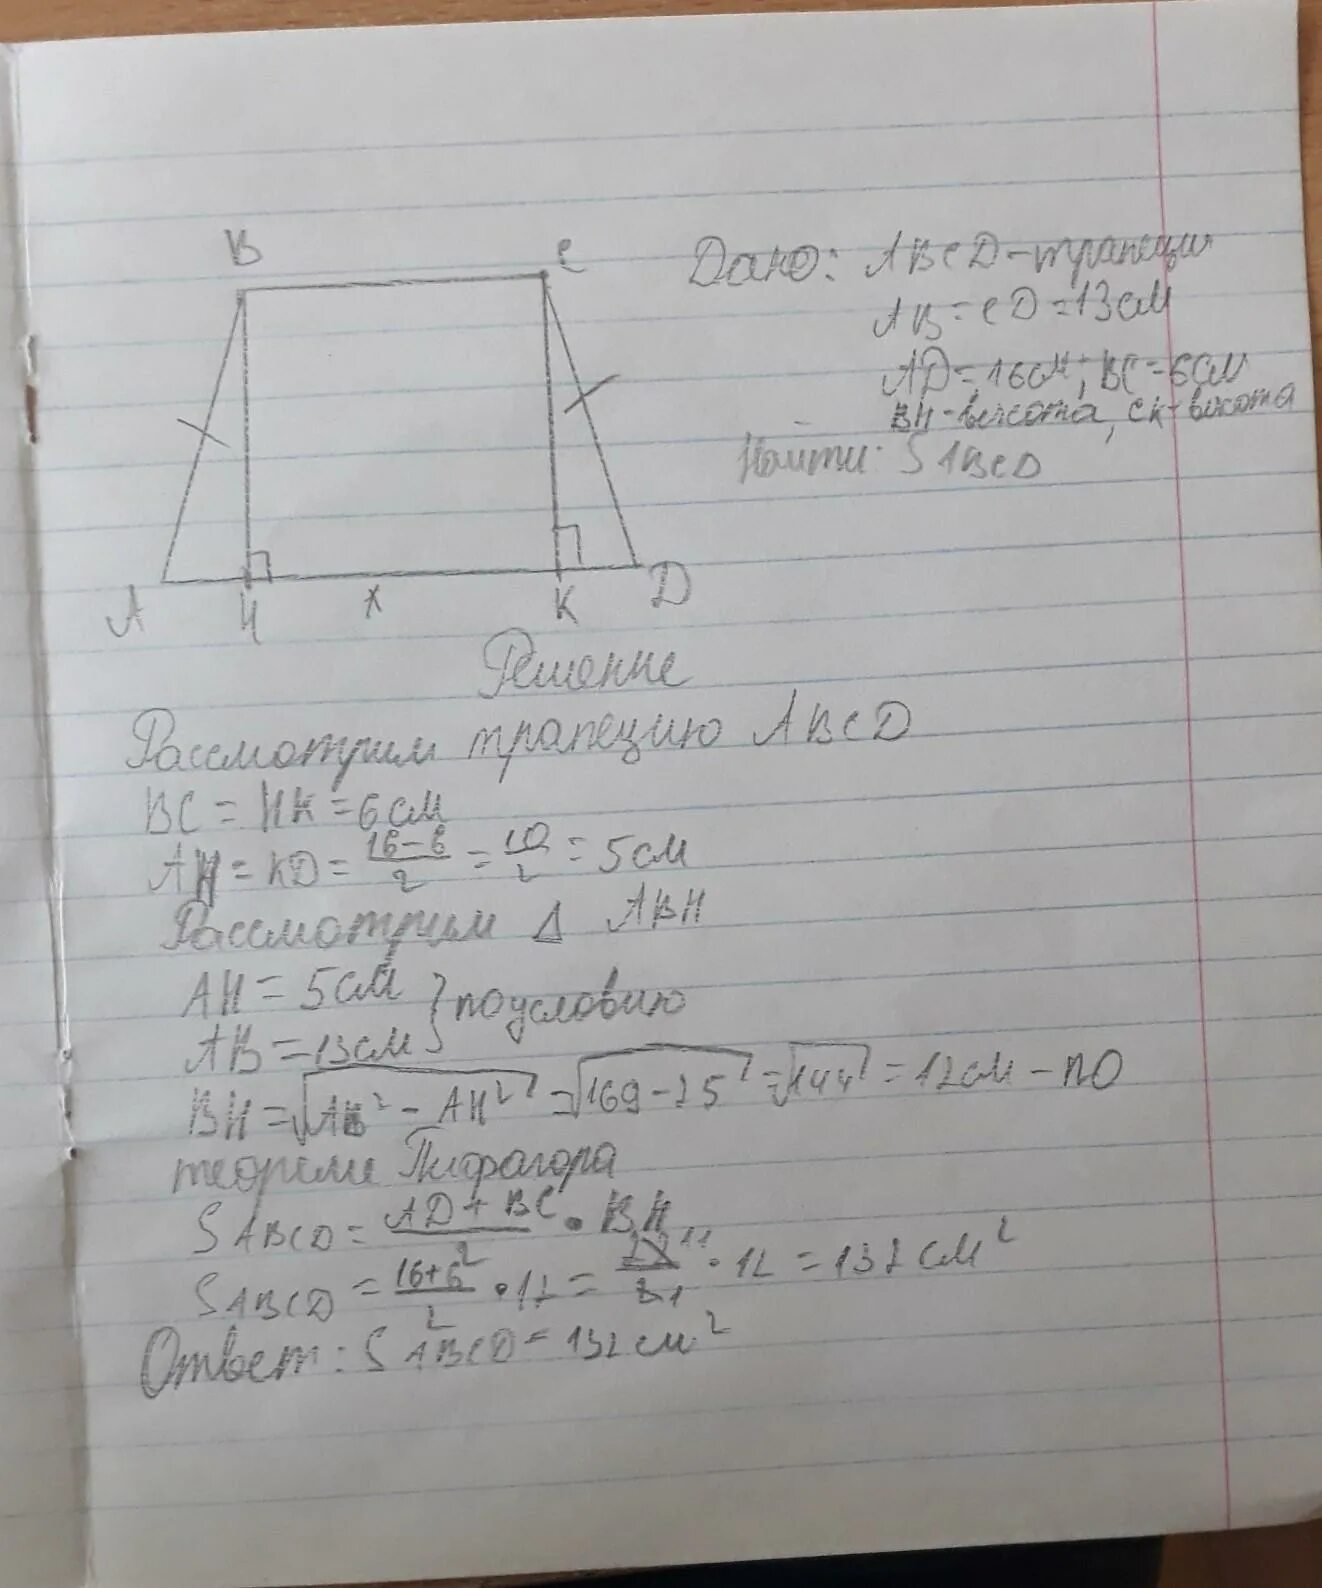 B C
A H x K D
Дано: ABCD-трапеция
AB = CD = 13см
AD = 16см; BC = 6см
BH-высота, CK-высота
Найти: S ABCD
Решение
Рассмотрим трапецию ABCD
BC = HK = 6см
AH = KD = \frac{16-6}{2} = \frac{10}{2} = 5см
Рассмотрим Δ ABH
AH = 5см
AB = 13см } по условию
BH = √(AB² - AH²) = √(169-25) = √144 = 12см - по
теореме Пифагора
S ABCD = \frac{AD+BC}{2} • BH
S ABCD = \frac{16+6}{2} • 12 = \frac{22 11}{2 1} • 12 = 132 см²
Ответ: S ABCD = 132 см²